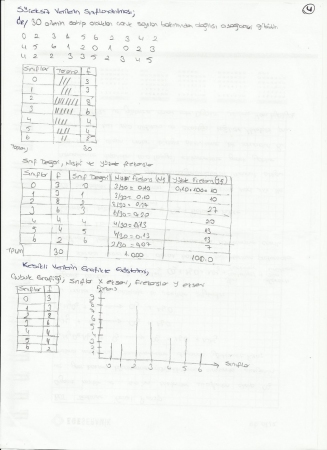 4
Süreksiz Verilerin Sınıflandırılması;
30 ailenin sahip oldukları çocuk sayıları bakımından dağılışı aşağıdaki gibidir.
0 2 3 6 5 6 2 3 4 2
4 5 6 1 2 0 1 0 2 3
4 2 2 3 3 5 2 3 4 5
Sınıflar f
0 /// 3
1 /// 3
2 8
3 6
4 //// 4
5 //// 4
6 // 2
Toplam 30
Sınıf Değeri, Nispi ve yüzde frekanslar
Sınıflar f Sınıf Değeri Nispi Frekans Yüzde Frekans
0 3 0 3/30 = 0.10 0.10×100 = 10
1 3 1 3/30 = 0.10 10
2 8 2 27
3 6 3 6/30 = 0.20 20
4 4 4 4/30 = 0.13 13
5 4 5 4/30 = 0.13 13
6 2 6 2/30 = 0.07 7
Toplam 30 1.000 100.0
Kesikli Verilerin Grafikle Gösterimi;
Çubuk Grafiği; sınıflar X ekseni, frekanslar Y ekseni
Sınıflar f
0 3
1 3
2 8
3 6
4 4
5 4
6 2
0 1 2 3 4 5 6 Sınıflar